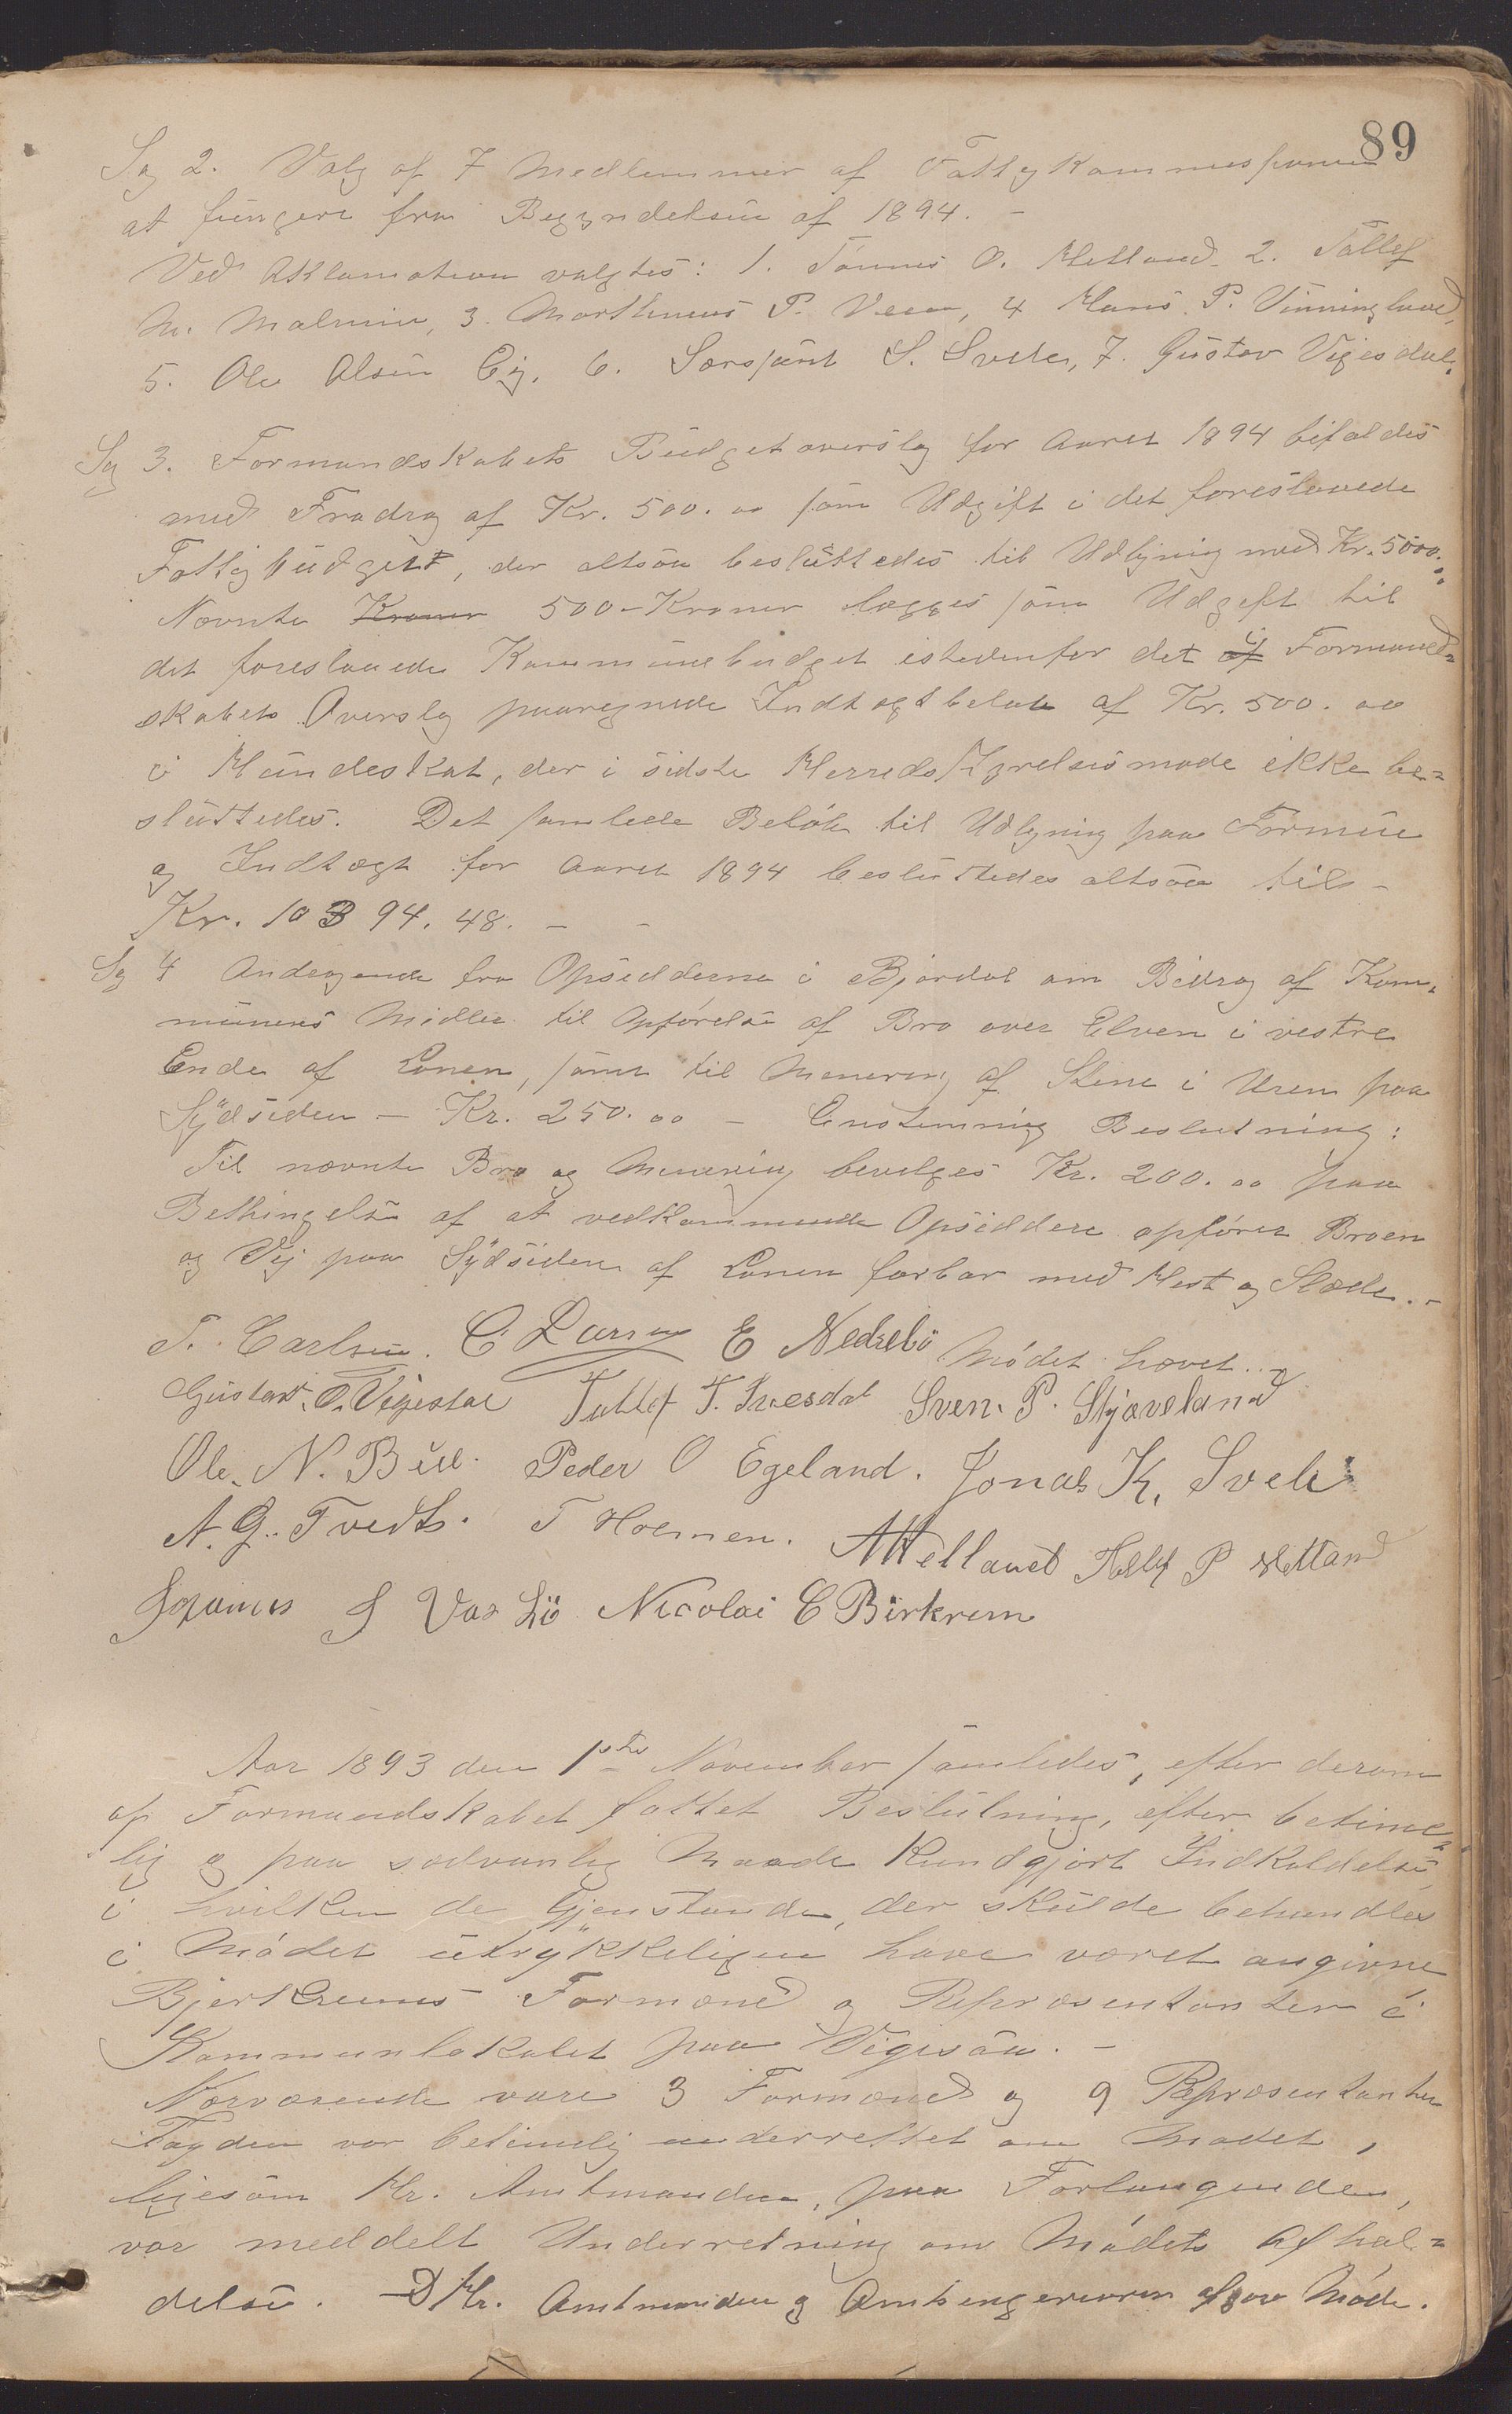 89
Sag 2. Valg af 7 Medlemmer af Fattigkommissionen
at fungere fra Begyndelsen af 1894. –
Ved Aklamation valgtes: 1. Tønnes O. Hetland. 2. Tallef
M. Malmin, 3. Marthinus P. Veen, 4 Hans P. Vinningland,
5. Ole Olsen Eig. 6. Sersjant S. Svele, 7. Gustav Vigesdal.
Sag 3. Formandskabets Budgetoverslag for Aaret 1894 bifaldes
med Fradrag af Kr. 500.00 som Udgift i det foreslaaede
Fattigbudget, der altsaa besluttedes til Udligning med Kr. 5000.00
Nævnte Kroner 500 – Kroner lægges som Udgift til
det foreslaaede Kommunebudget istedenfor det af i Formand=
skabets Overslag paaregnede Indtægtbeløb af Kr. 500.00
i Hundeskat, der i sidste Herredsstyrelsesmøde ikke be=
sluttedes. Det samlede Beløb til Udligning paa Formue
og Indtægt for Aaret 1894 besluttedes altsaa til –
Kr. 10394.48. – –
Sag 4 Andragende fra Opsidderne i Bjordal om Bidrag af Kom=
munens Midler til Opførelse af Bro over Elven i vestre
Ende af Lonen, samt til Minering af Stene i Uren paa
Sydsiden – Kr. 250.00 – Enstemmig Beslutning:
Til nævnte Bro og Minering bevilges Kr. 200.00 paa
Bethingelse af at vedkommende Opsiddere opfører Broen
og Vej paa Sydsiden af Lonen farbar med Hest og Slæde. –
Mødet hævet. –
T. Carlsen. C Larsen E Nedrebø
Gustav. O. Vigesdal Tallef T. Ivesdal Sven. P. Skjæveland
Ole. N. Bue. Peder O Egeland. Jonas K. Svele
N. G. Tvedt. T Holmen. A Hetland Tollef P Hetland
Johannes S Vas bø Nicolai C Birkrem
Aar 1893 den 1ste November samledes, efter derom
af Formandskabet fattet Beslutning, efter betime=
lig og paa sædvanlig Maade kundgjort Indkaldelse,
i hvilken de Gjenstande, der skulde behandles
i Mødet udtrykkeligen have været angivne
Bjerkreims Formænd og Repræsentanter i
Kommunelokalet paa Vigesaa. –
Nærværende vare 3 Formænd og 9 Repræsentanter
Fogden var betimelig underrettet om Mødet,
ligesom Hr. Amtmanden, paa Forlangende,
var meddelt Underretning om Mødets Afhol=
delse. Hr. Amtmanden og Amtsingeniøren afgav Møde.